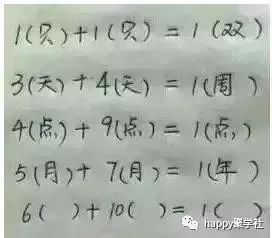 1(只)+1(只)=1(双)
3(天)+4(天)=1(周)
4(点)+9(点)=1(点)
5(月)+7(月)=1(年)
6( )+10( )=1( )
happy聚学社